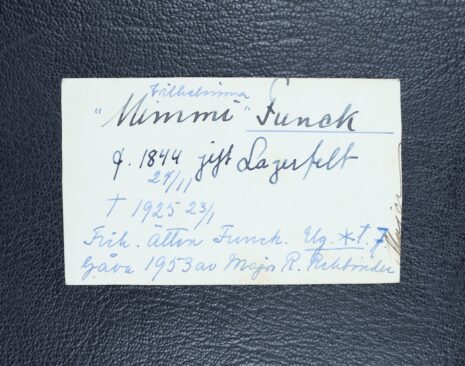 Vilhelmina
"Mimmi" Funck
f. 1844 gift Lagerfelt
24/11
† 1925 23/1
Frih. ätten Funck.
Gåva 1953 av Major R. Rehbinder